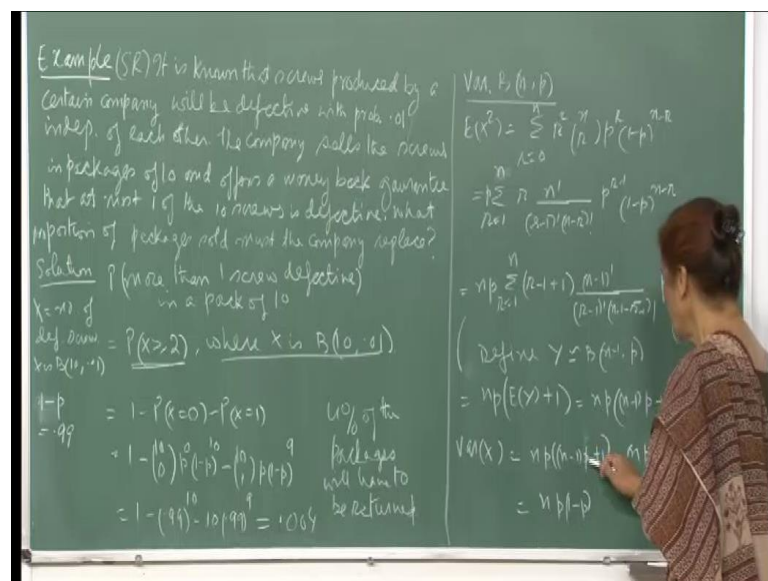 Example (SR) It is known that screws produced by a
certain company will be defective with prob. .01
indep. of each other. The company sells the screws
in packages of 10 and offers a money back guarantee
that at most 1 of the 10 screws is defective. What
proportion of packages sold must the company replace?
Solution P(more than 1 screw defective)
in a pack of 10
X = no of
def. screws
X is B(10, .01)
= P(X≥2), where X is B(10, .01)
1-p
= .99
= 1 - P(X=0) - P(X=1)
= 1 - (10 0) p^0 (1-p)^10 - (10 1) p(1-p)^9
= 1 - (.99)^10 - 10(.99)^9 = .004
of the
packages
will have to
be returned
Var. B(n, p)
E(X²) = Σ_{r=0}^{n} r² (n r) p^r (1-p)^{n-r}
= p Σ_{r=1}^{n} r n! / (r-1)!(n-r)! p^{r-1} (1-p)^{n-r}
= np Σ_{r=1}^{n} (r-1+1) (n-1)! / (r-1)!(n-1-r-1)!
( Define Y ≃ B(n-1, p)
= np(E(Y)+1) = np((n-1)p
Var(X) = np((n-1)p+1) np
= np(1-p)